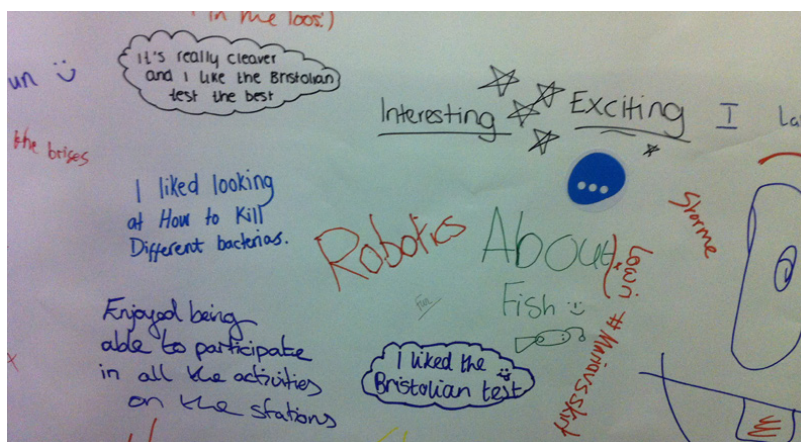 in the loos!)
It's really cleaver
and I like the Bristolian
test the best
un
the brises
Interesting
Exciting
I
La
I liked looking
at How to Kill
Different bacterias.
Robotics
About
Fish
Storme
Enjoyed being
able to participate
in all the activities
on the stations
I liked the
Bristolian test